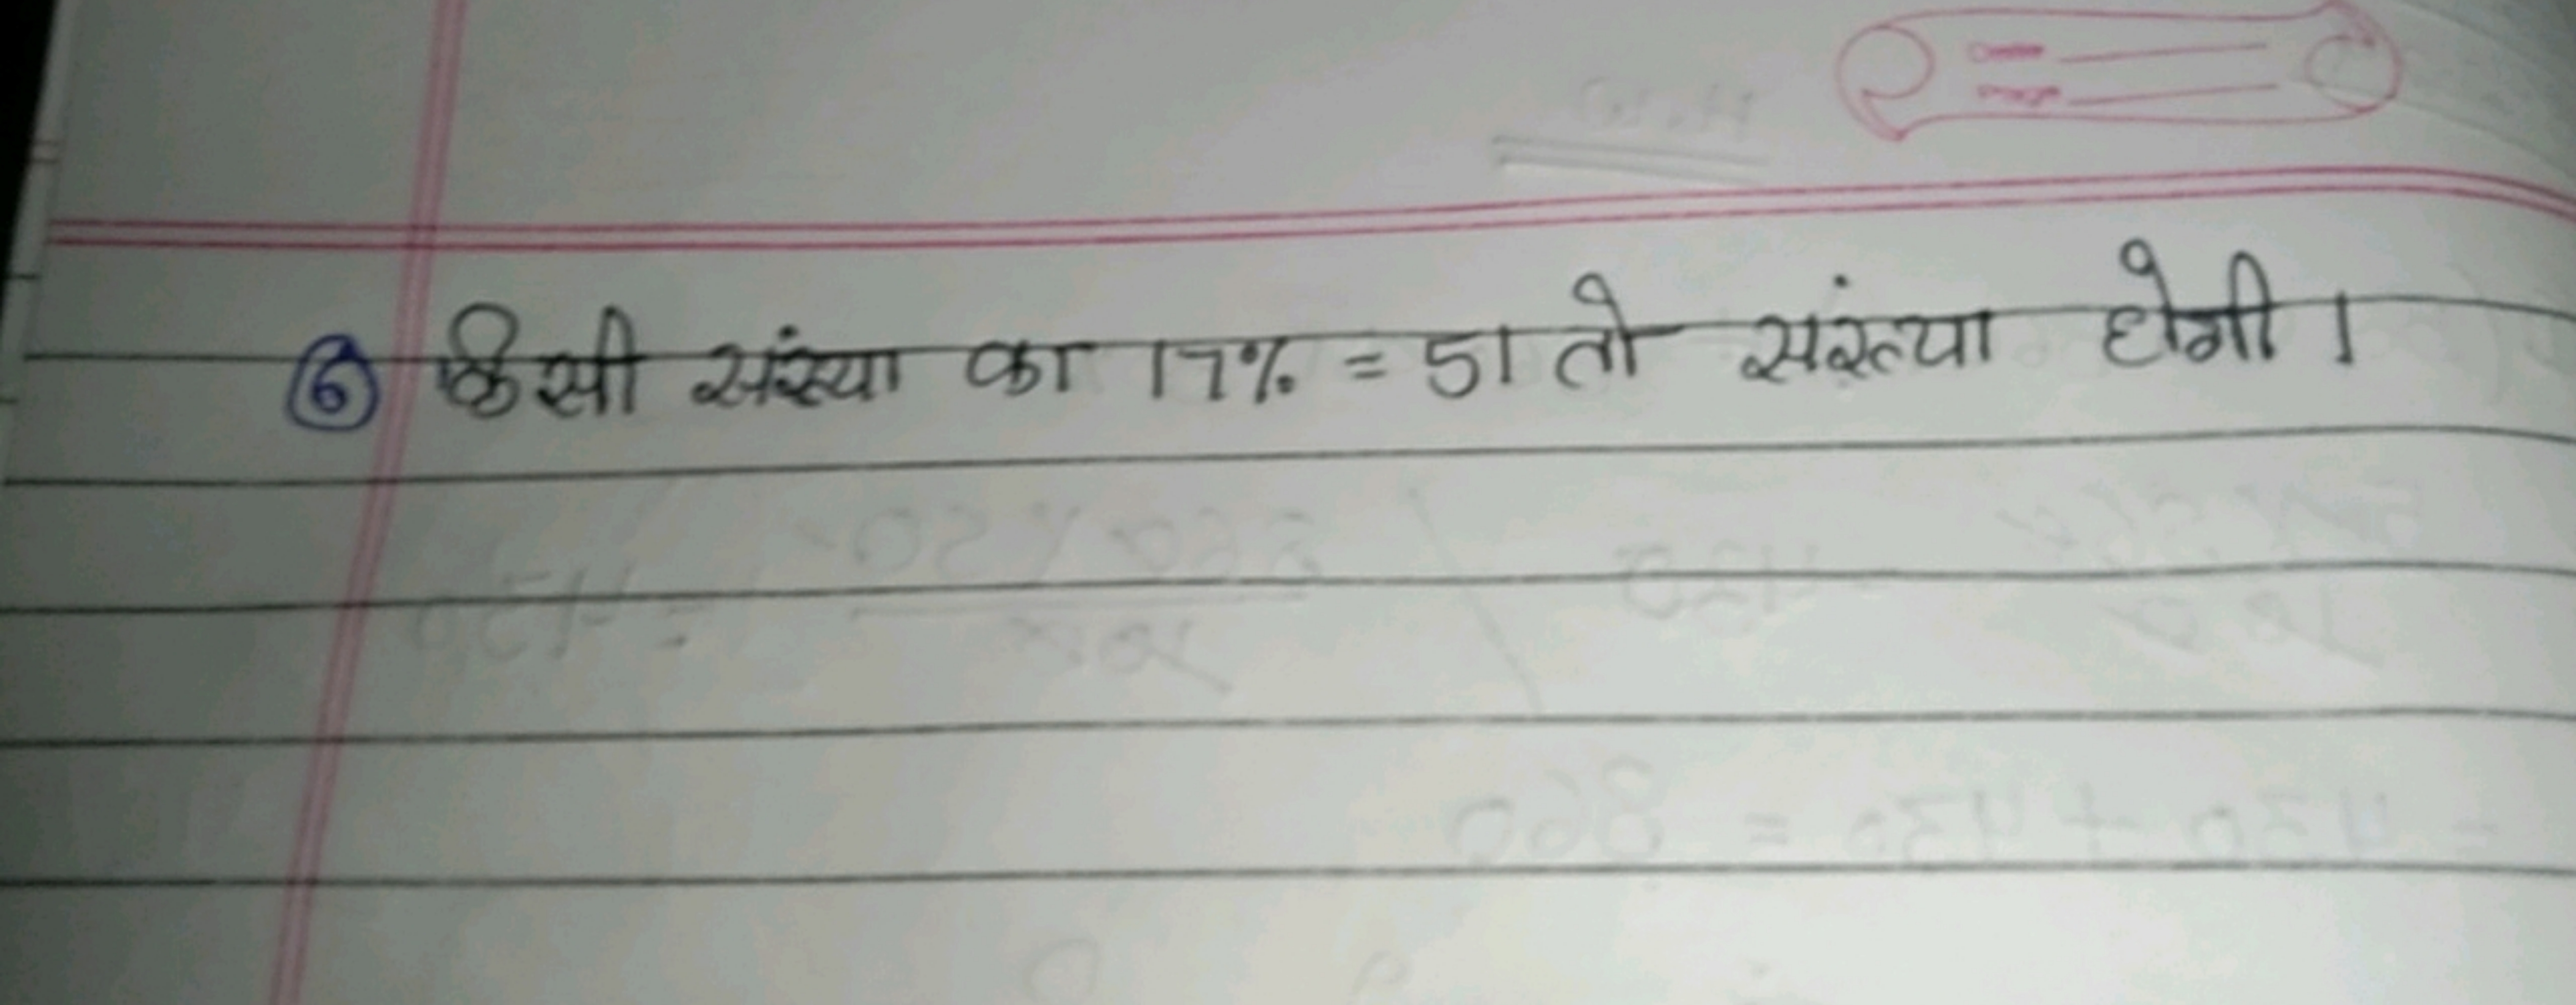 ⑥ किसी संख्या का 17% = 51 तो संख्या होगी।